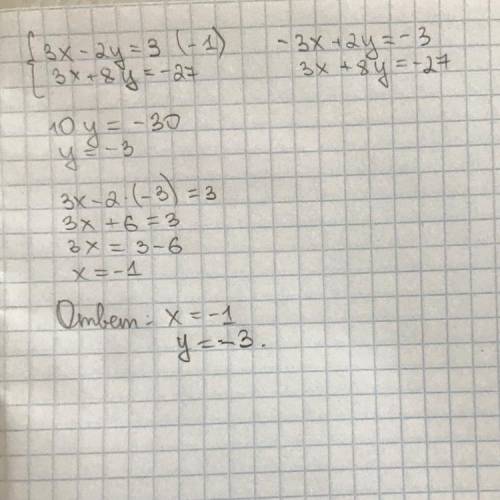 3x - 2y = 3 (-1)
3x + 8y = -27
-3x + 2y = -3
3x + 8y = -27
10y = -30
y = -3
3x - 2 · (-3) = 3
3x + 6 = 3
3x = 3 - 6
x = -1
Ответ: x = -1
y = -3.